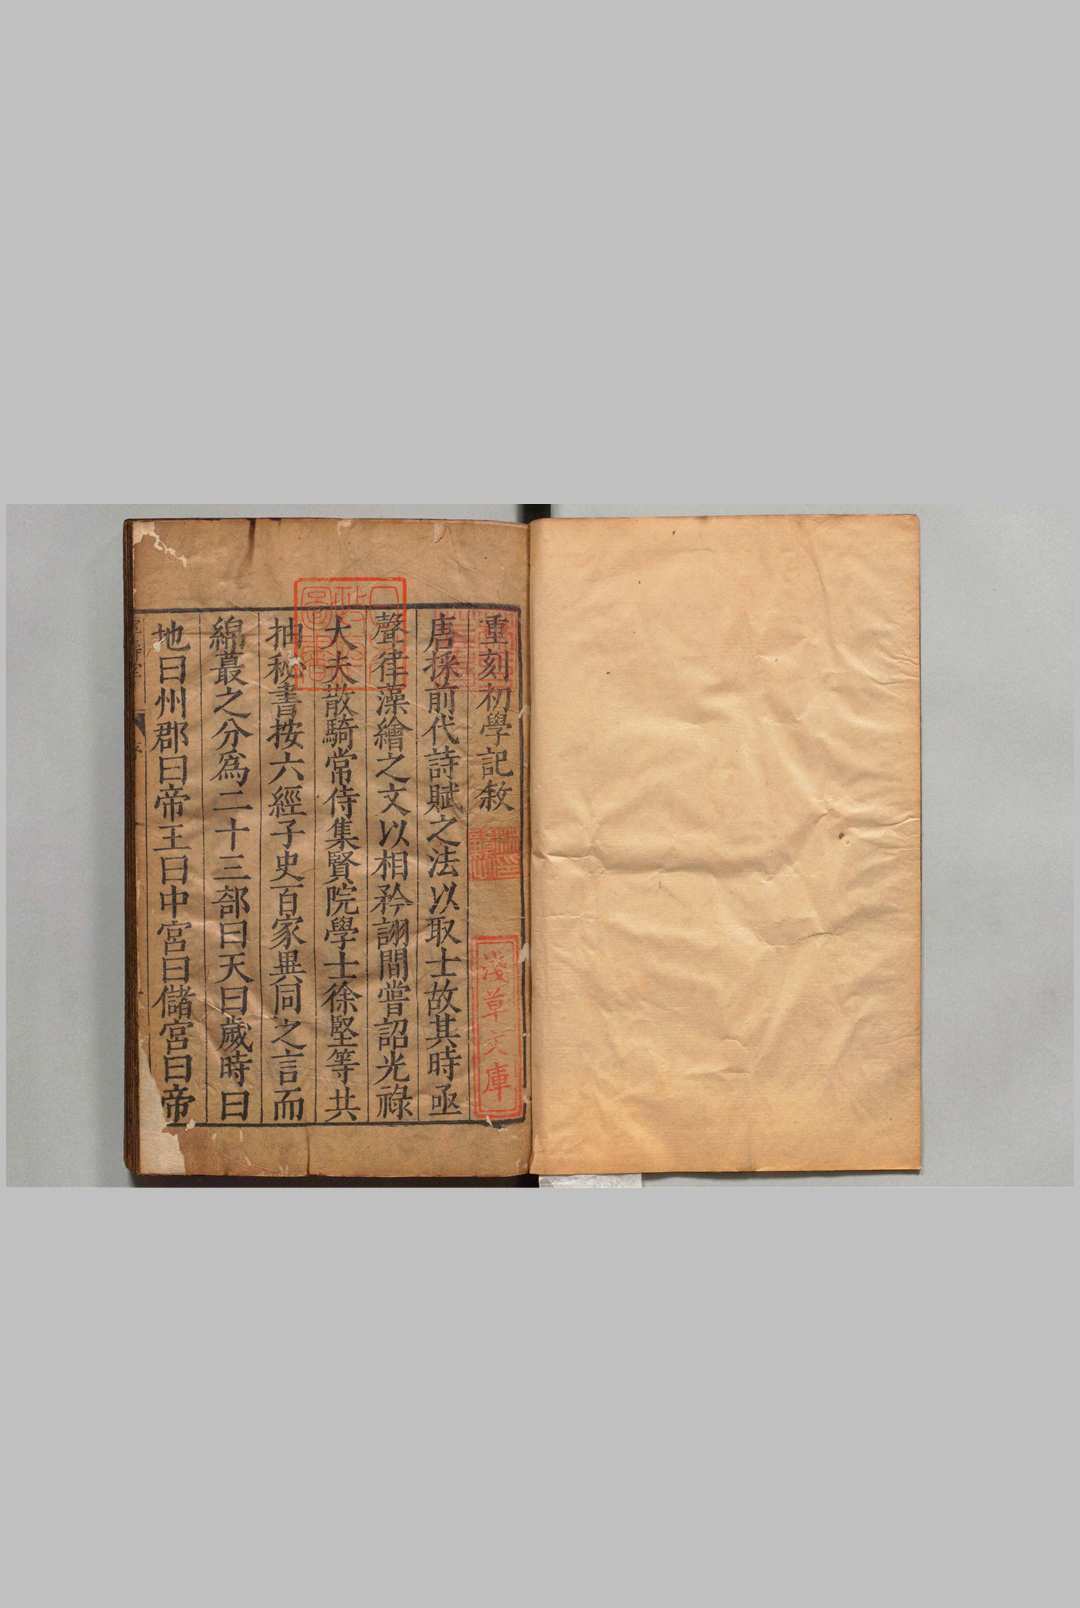 重刻初學記敘
淺草文庫
唐採前代詩賦之法以取士故其時亟
聲律藻繪之文以相矜詡間嘗詔光祿
大夫散騎常侍集賢院學士徐堅等共
抽秘書按六經子史百家異同之言而
綿蕞之分爲二十三部曰天曰歲時曰
地曰州郡曰帝王曰中宮曰儲宮曰帝